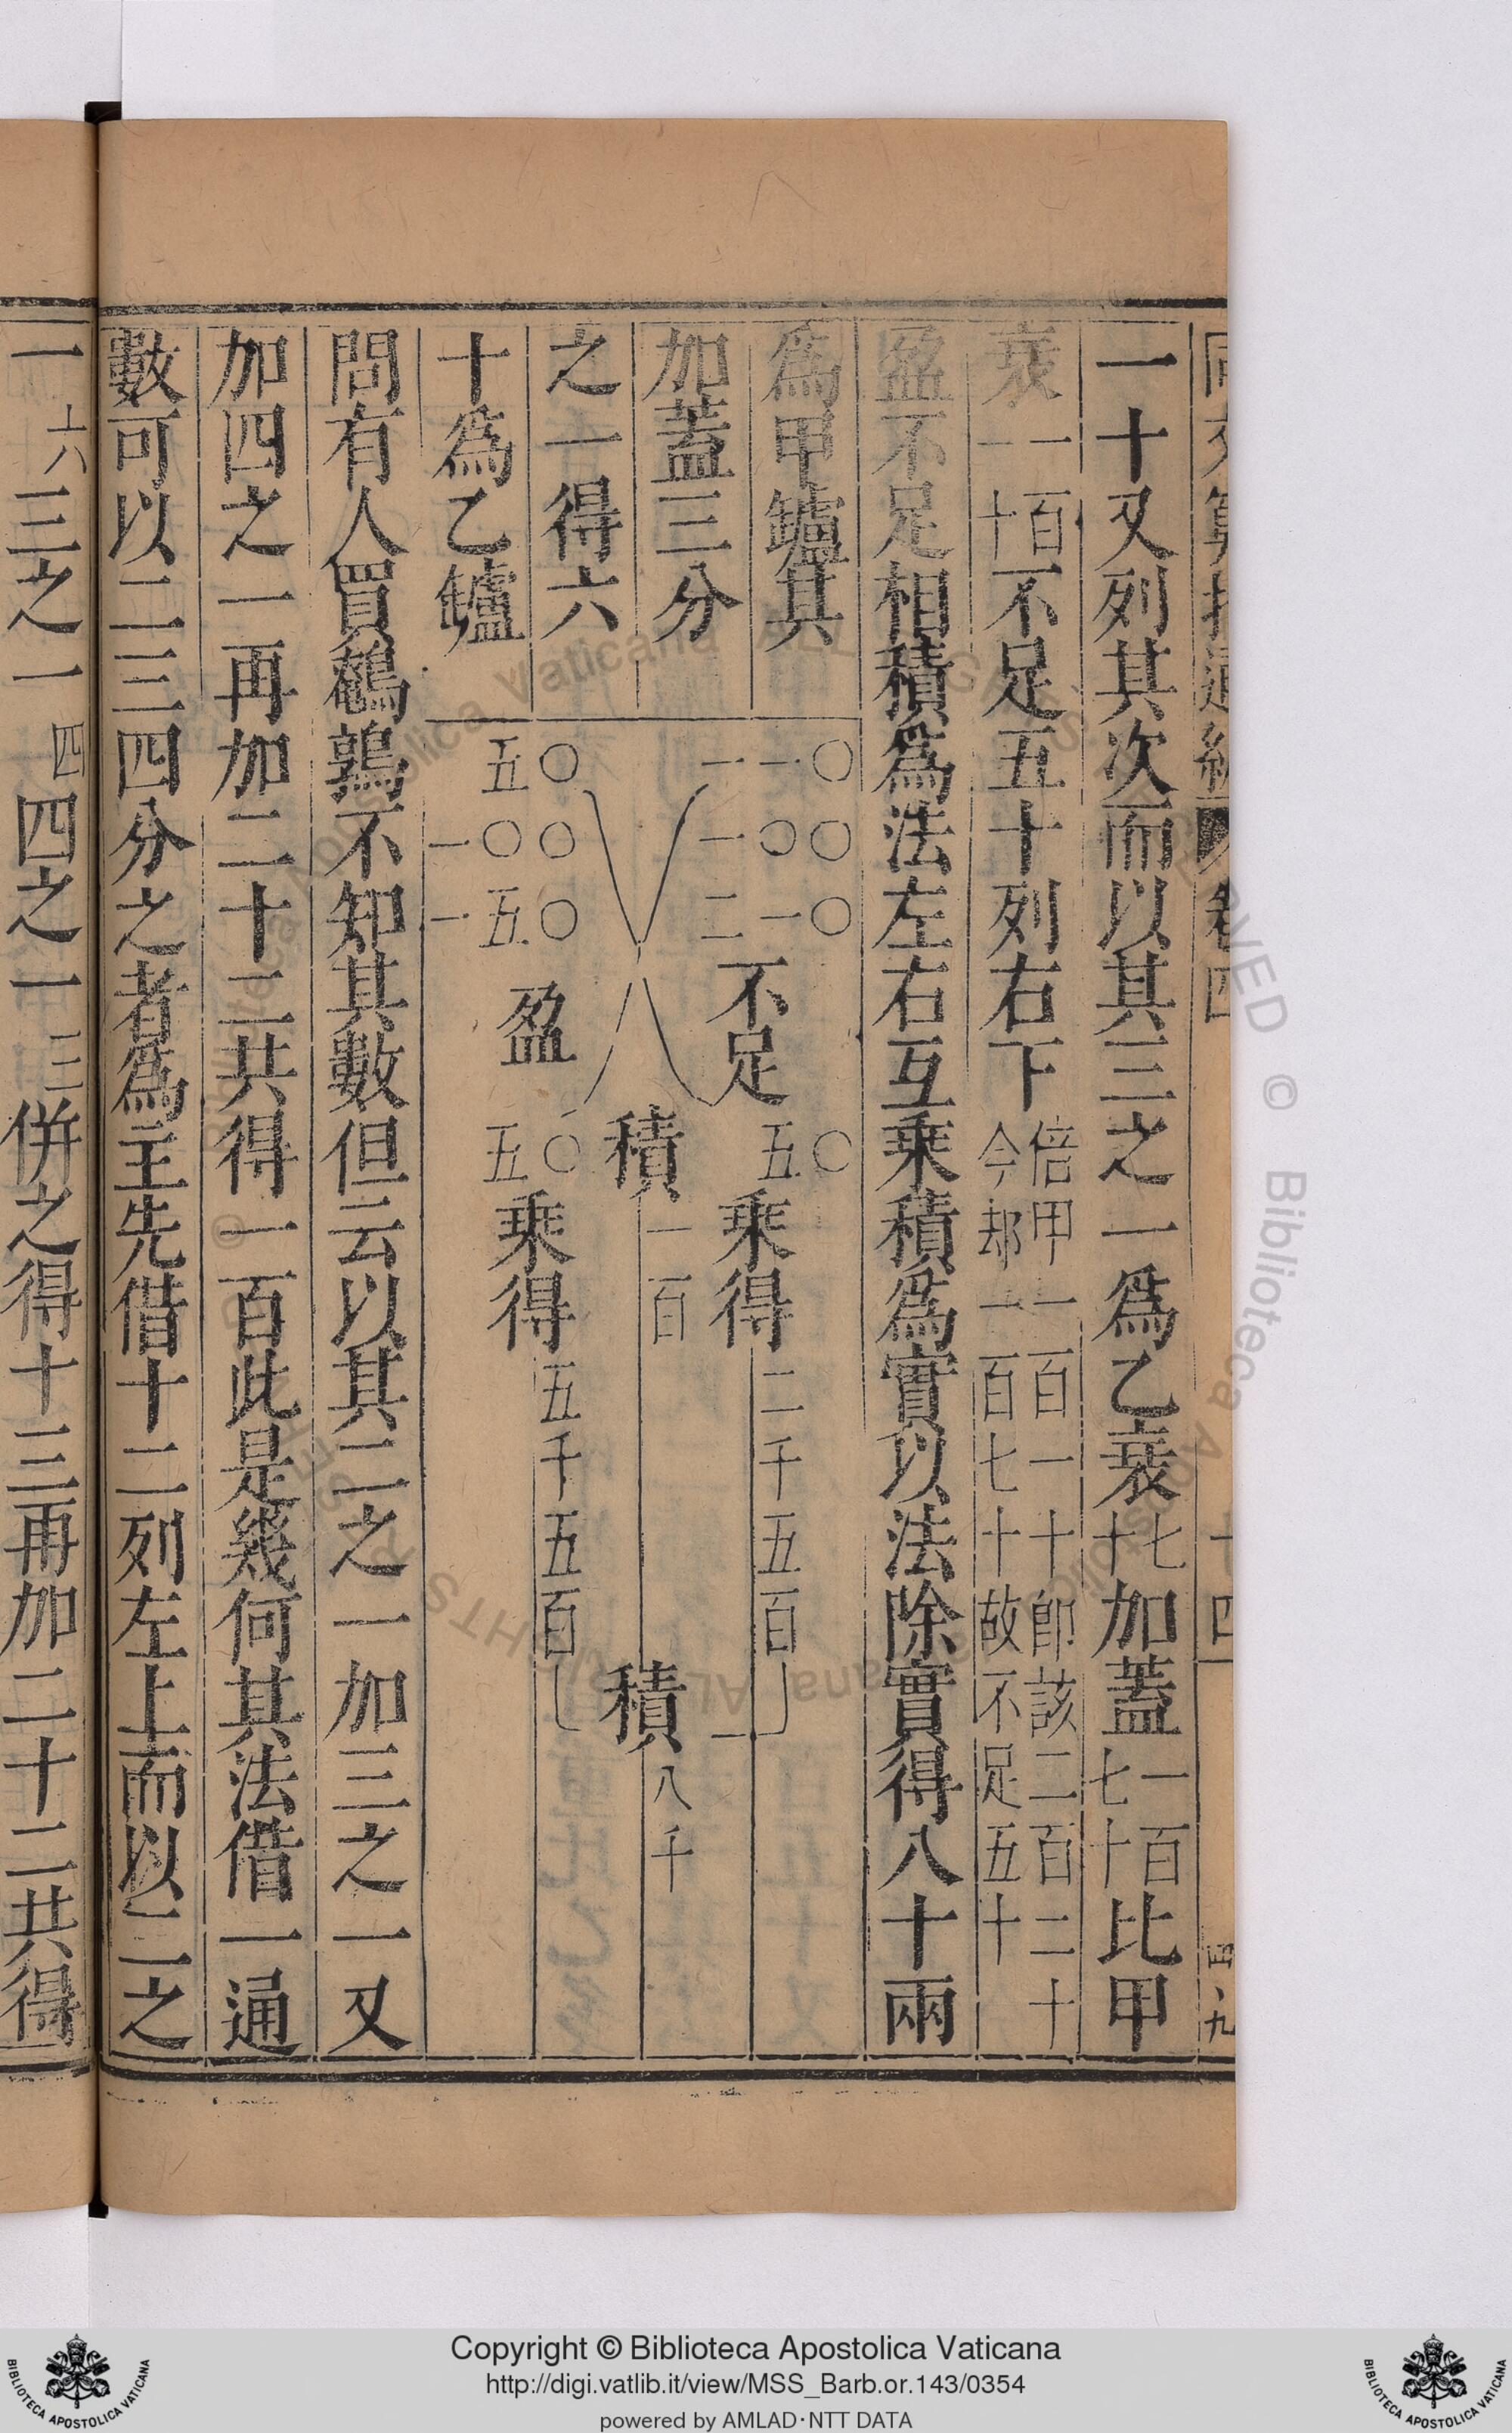 同文算指通編 卷四 十四 四、九
一十又列其次而以其三之一爲乙衰七十加蓋一百七十比甲
衰一百一十不足五十列右下倍甲一百一十即該二百二十今却一百七十故不足五十
盈不足相積爲法左右互乘積爲實以法除實得八十兩
爲甲鑪其
加蓋三分
之一得六
十爲乙鑪
一一〇
一〇〇
二一〇
不足
五〇
乘得
二千五百
積
一百
積
八千
五〇
一〇〇
一五〇
盈
五〇
乘得
五千五百
問有人買鵪鶉不知其數但云以其二之一加三之一又
加四之一再加二十二共得一百此是幾何其法借一通
數可以二三四分之者爲主先借十二列左上而以二之
一六三之一四四之一三併之得十三再加二十二共得
Copyright © Biblioteca Apostolica Vaticana
http://digi.vatlib.it/view/MSS_Barb.or.143/0354
powered by AMLAD·NTT DATA
BIBLIOTECA APOSTOLICA VATICANA
BIBLIOTECA APOSTOLICA VATICANA